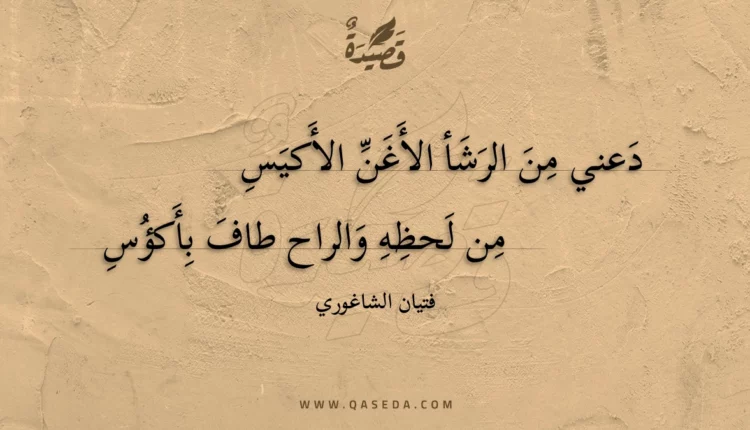 قَصِيدَةٌ
دَعني مِنَ الرَشَأ الأَغَنِّ الأَكيَسِ
مِن لَحظِهِ وَالراح طافَ بِأَكؤُسِ
فتيان الشاغوري
WWW.QASEDA.COM